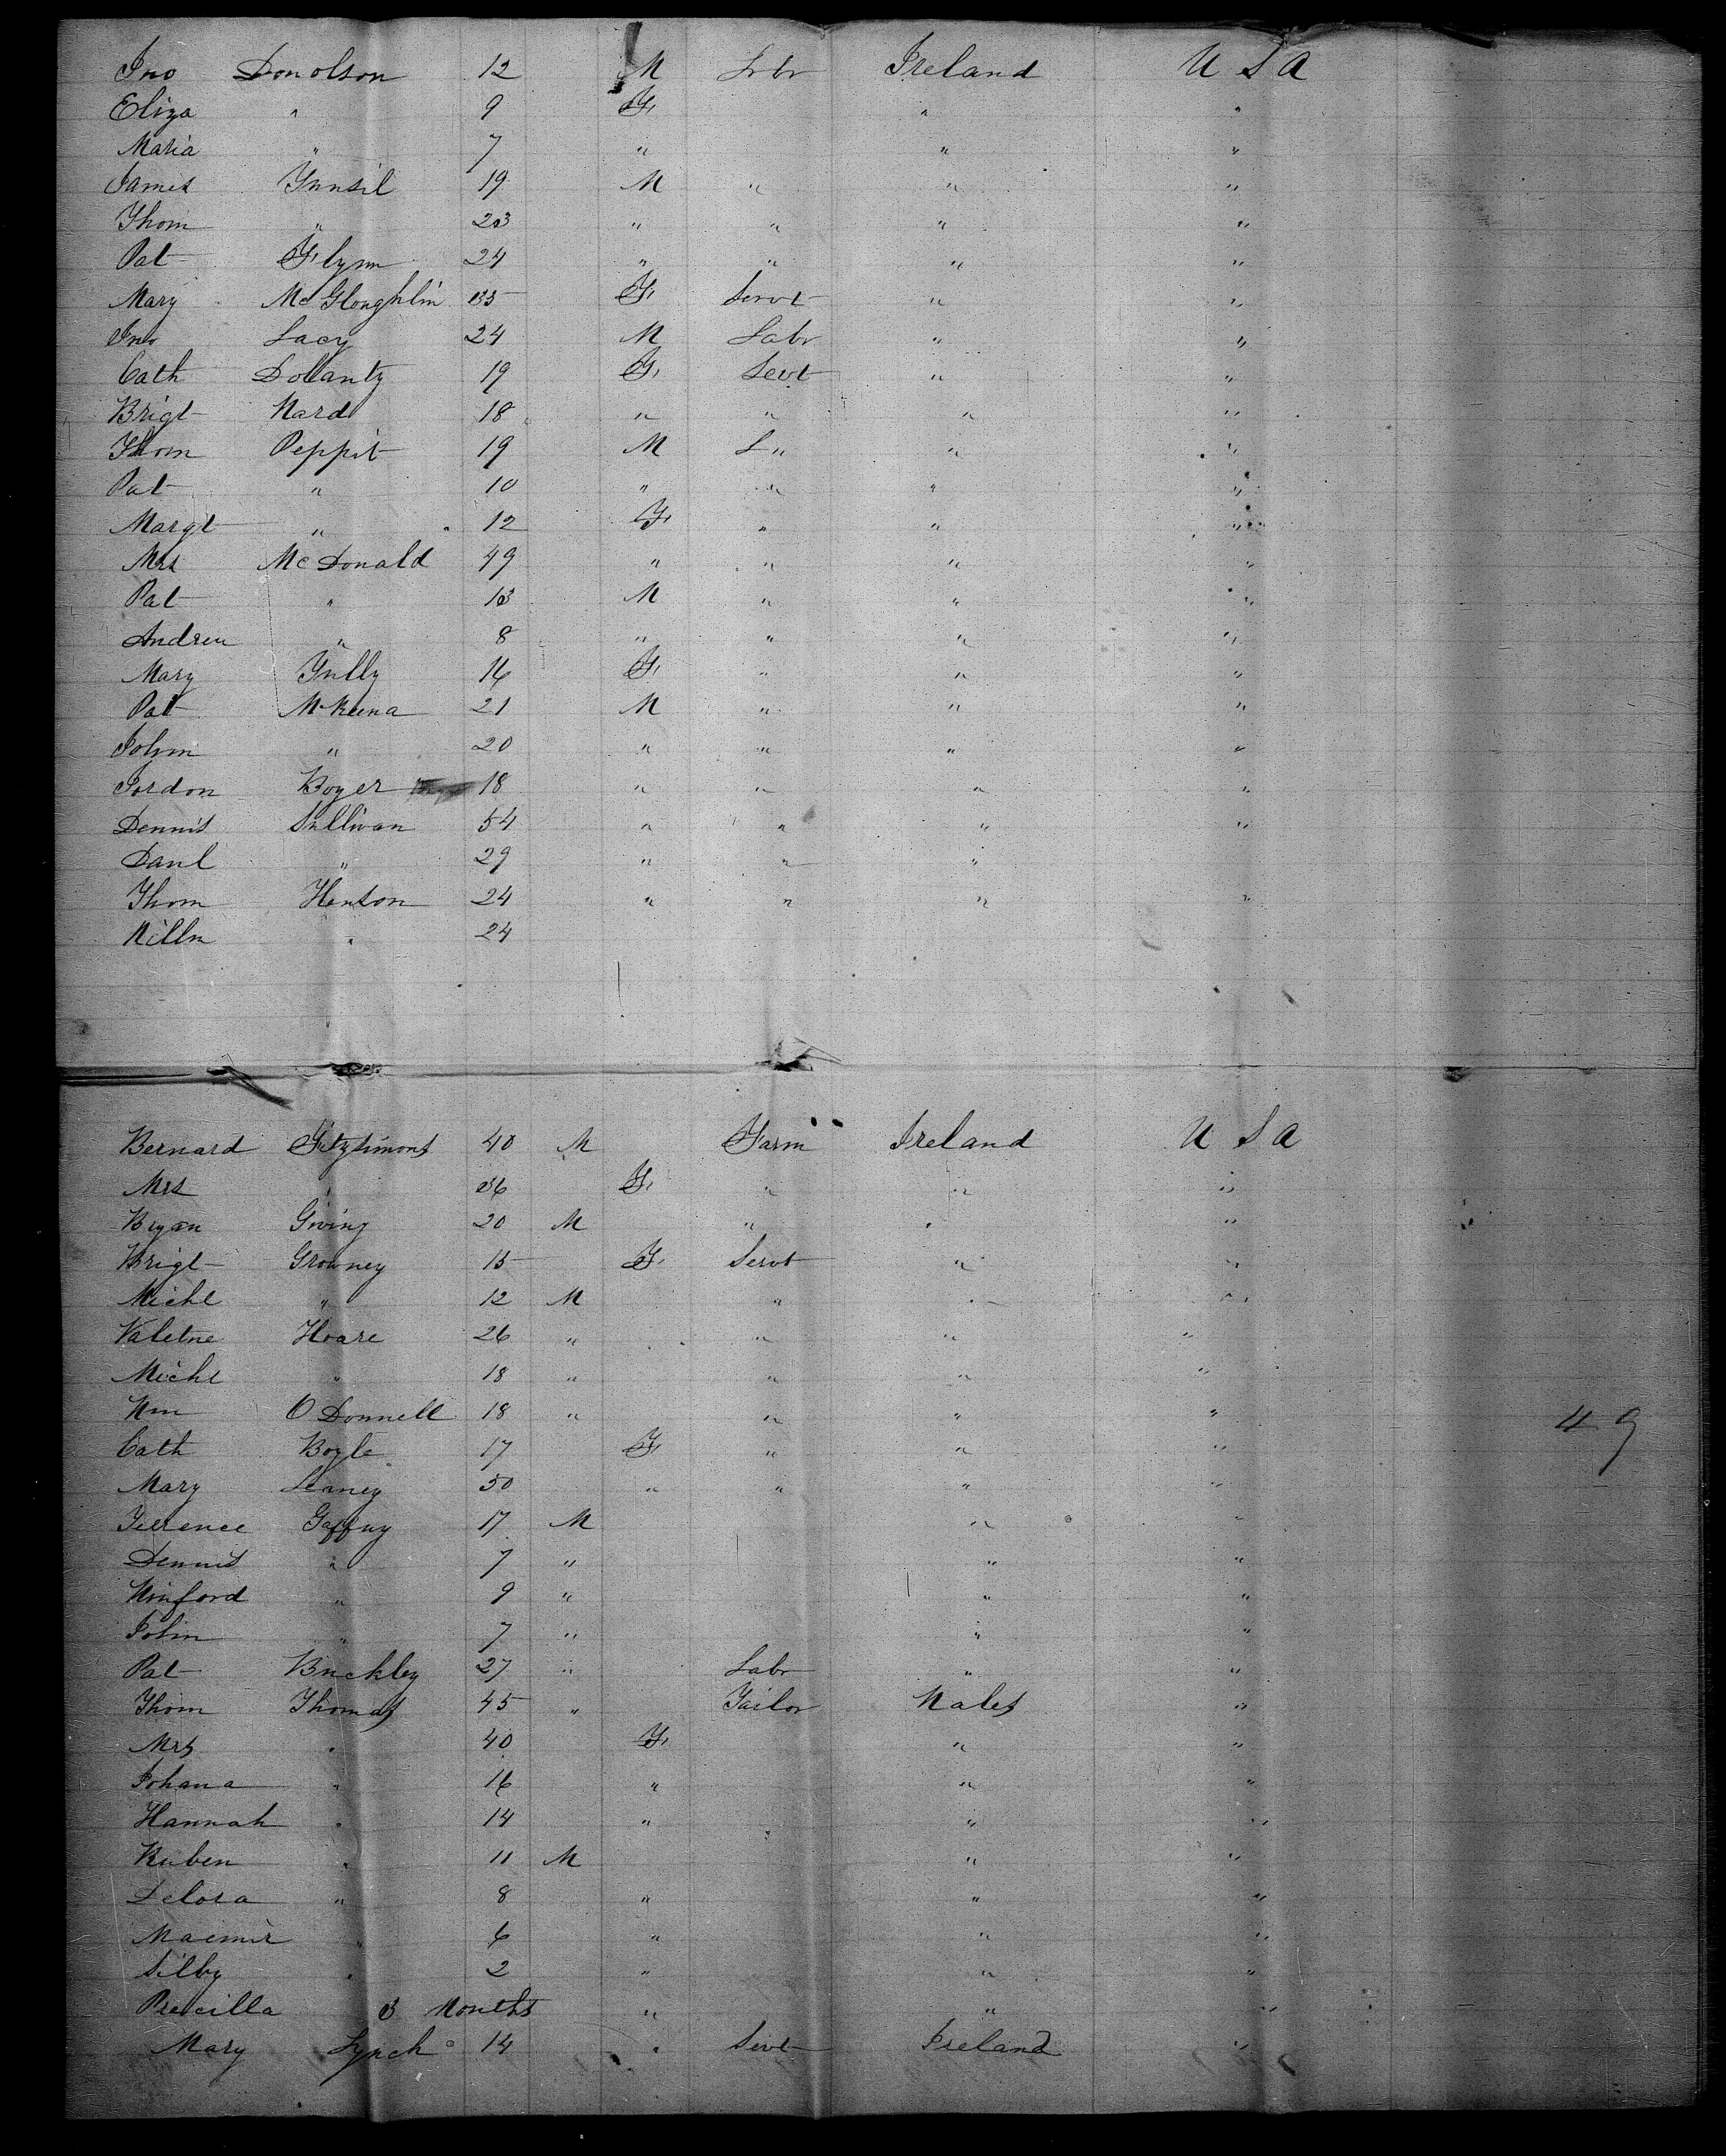 Jno Donolson 12 M Lrbr Ireland U S A
Eliza " 9 F " "
Maria " 7 " " "
James Tunsil 19 M " " "
Thom " 23 " " " "
Pat Flynn 24 " " " "
Mary McGloughlin 35 F Servt " "
Jno Lacy 24 M Labr " "
Cath Dollanty 19 F Sevt " "
Brigt Ward 18 " " " "
Thom Peppit 19 M L " " "
Pat " 10 " " " "
Margt " 12 F " " "
Mrs McDonald 49 " " " "
Pat " 13 M " " "
Andrew " 8 " " " "
Mary Tully 16 F " " "
Pat McKeena 21 M " " "
John " 20 " " " "
Jordon Boyer 18 " " " "
Dennis Sullivan 54 " " " "
Danl " 29 " " "
Thom Henton 24 " " " "
Willm " 24
Bernard Fitzsimons 40 M Farm Ireland U S A
Mrs " 36 F " " "
Bryan Giving 20 M " " "
Brigt Growney 15 F Servt " "
Michl " 12 M " " "
Valetne Hoare 26 " " " "
Michl " 18 " " " "
Wm O Donnell 18 " " " "
49
Cath Boyle 17 F " " "
Mary Leaney 50 " " " "
Terrence Gaffny 17 M " "
Dennis " 7 " " "
Winford " 9 " " "
John " 7 " " "
Pat Buckley 27 " Labr " "
Thom Thomas 45 " Tailor Wales "
Mrs " 40 F " "
Johana " 16 " " "
Hannah " 14 " " "
Ruben " 11 M " "
Delora " 8 " " "
" 6 " " "
Silby " 2 " " "
Precilla 3 Months " " "
Mary Lynch 14 " Sevt Ireland "